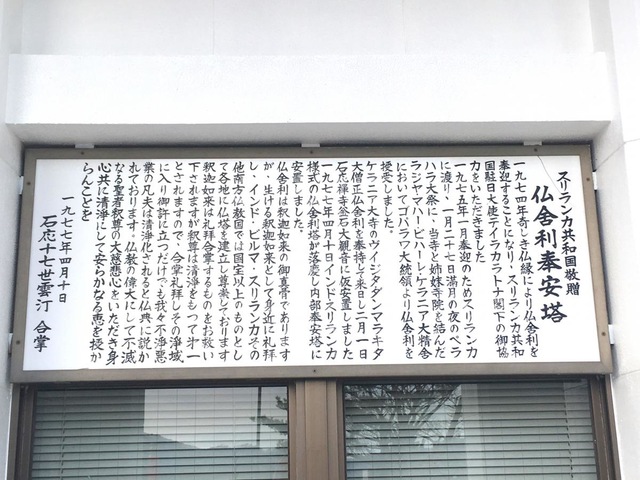 スリランカ共和国敬贈
仏舎利奉安塔
一九七四年奇しき仏縁により仏舎利を
奉迎することになり、スリランカ共和
国駐日大使テイラカラトナ閣下の御協
力をいただきました
一九七五年一月奉迎のためスリランカ
に渡り、一月二十七日満月の夜のペラ
ハラ大祭に、当寺と姉妹寺院を結んだ
ラジヤマハービハーレ・ケラニア大精舎
においてゴパラワ大統領より仏舎利を
授受しました。
ケラニア大寺のヴイジタダンマラキタ
大僧正仏舎利を奉持して来日し二月一日
石応禅寺釜石大観音に仮安置しました
一九七七年四月十日インドスリランカ
様式の仏舎利塔が落慶し内部奉安塔に
安置しました。
仏舎利は釈迦如来の御真骨であります
が、生ける釈迦如来として身近に礼拝
し、インド・ビルマ・スリランカその
他南方仏教国では国宝以上のものとし
て各地に仏塔を建立し尊崇しております
釈迦如来は礼拝合掌するものをお救い
下されますが釈尊は清浄をもって第一
とされますので、合掌礼拝しその浄域
に入り御許に立つだけでも我々不浄悪
業の凡夫は清浄化されると仏典に説か
れております。仏教の偉大にして不滅
なる聖者釈尊の大慈悲心をいただき身
心共に清浄にして安らかなる恵を授か
らんことを
一九七七年四月十日
石応十七世雲汀 合掌